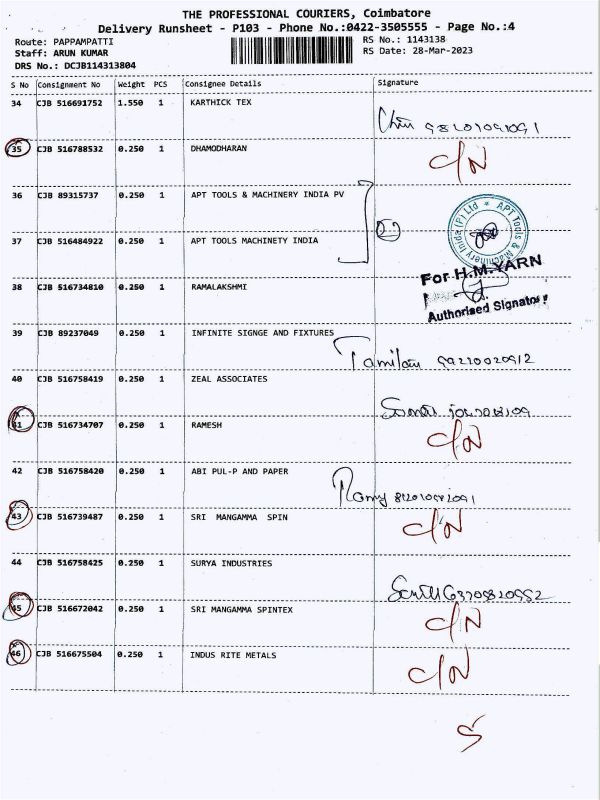 THE PROFESSIONAL COURIERS, Coimbatore
Delivery Runsheet - P103 - Phone No.:0422-3505555 - Page No.:4
Route: PAPPAMPATTI
RS No.: 1143138
Staff: ARUN KUMAR
RS Date: 28-Mar-2023
DRS No.: DCJB114313804
S No Consignment No Weight PCS Consignee Details Signature
34 CJB 516691752 1.550 1 KARTHICK TEX
35 CJB 516788532 0.250 1 DHAMODHARAN C/N
36 CJB 89315737 0.250 1 APT TOOLS & MACHINERY INDIA PV
APT Tools & Machinery India (P) Ltd
37 CJB 516484922 0.250 1 APT TOOLS MACHINETY INDIA
For H.M.YARN
38 CJB 516734810 0.250 1 RAMALAKSHMI
Authorised Signatory
39 CJB 89237049 0.250 1 INFINITE SIGNGE AND FIXTURES
40 CJB 516758419 0.250 1 ZEAL ASSOCIATES
41 CJB 516734707 0.250 1 RAMESH C/N
42 CJB 516758420 0.250 1 ABI PUL-P AND PAPER
43 CJB 516739487 0.250 1 SRI MANGAMMA SPIN C/N
44 CJB 516758425 0.250 1 SURYA INDUSTRIES
45 CJB 516672042 0.250 1 SRI MANGAMMA SPINTEX C/N
46 CJB 516675504 0.250 1 INDUS RITE METALS C/N
5